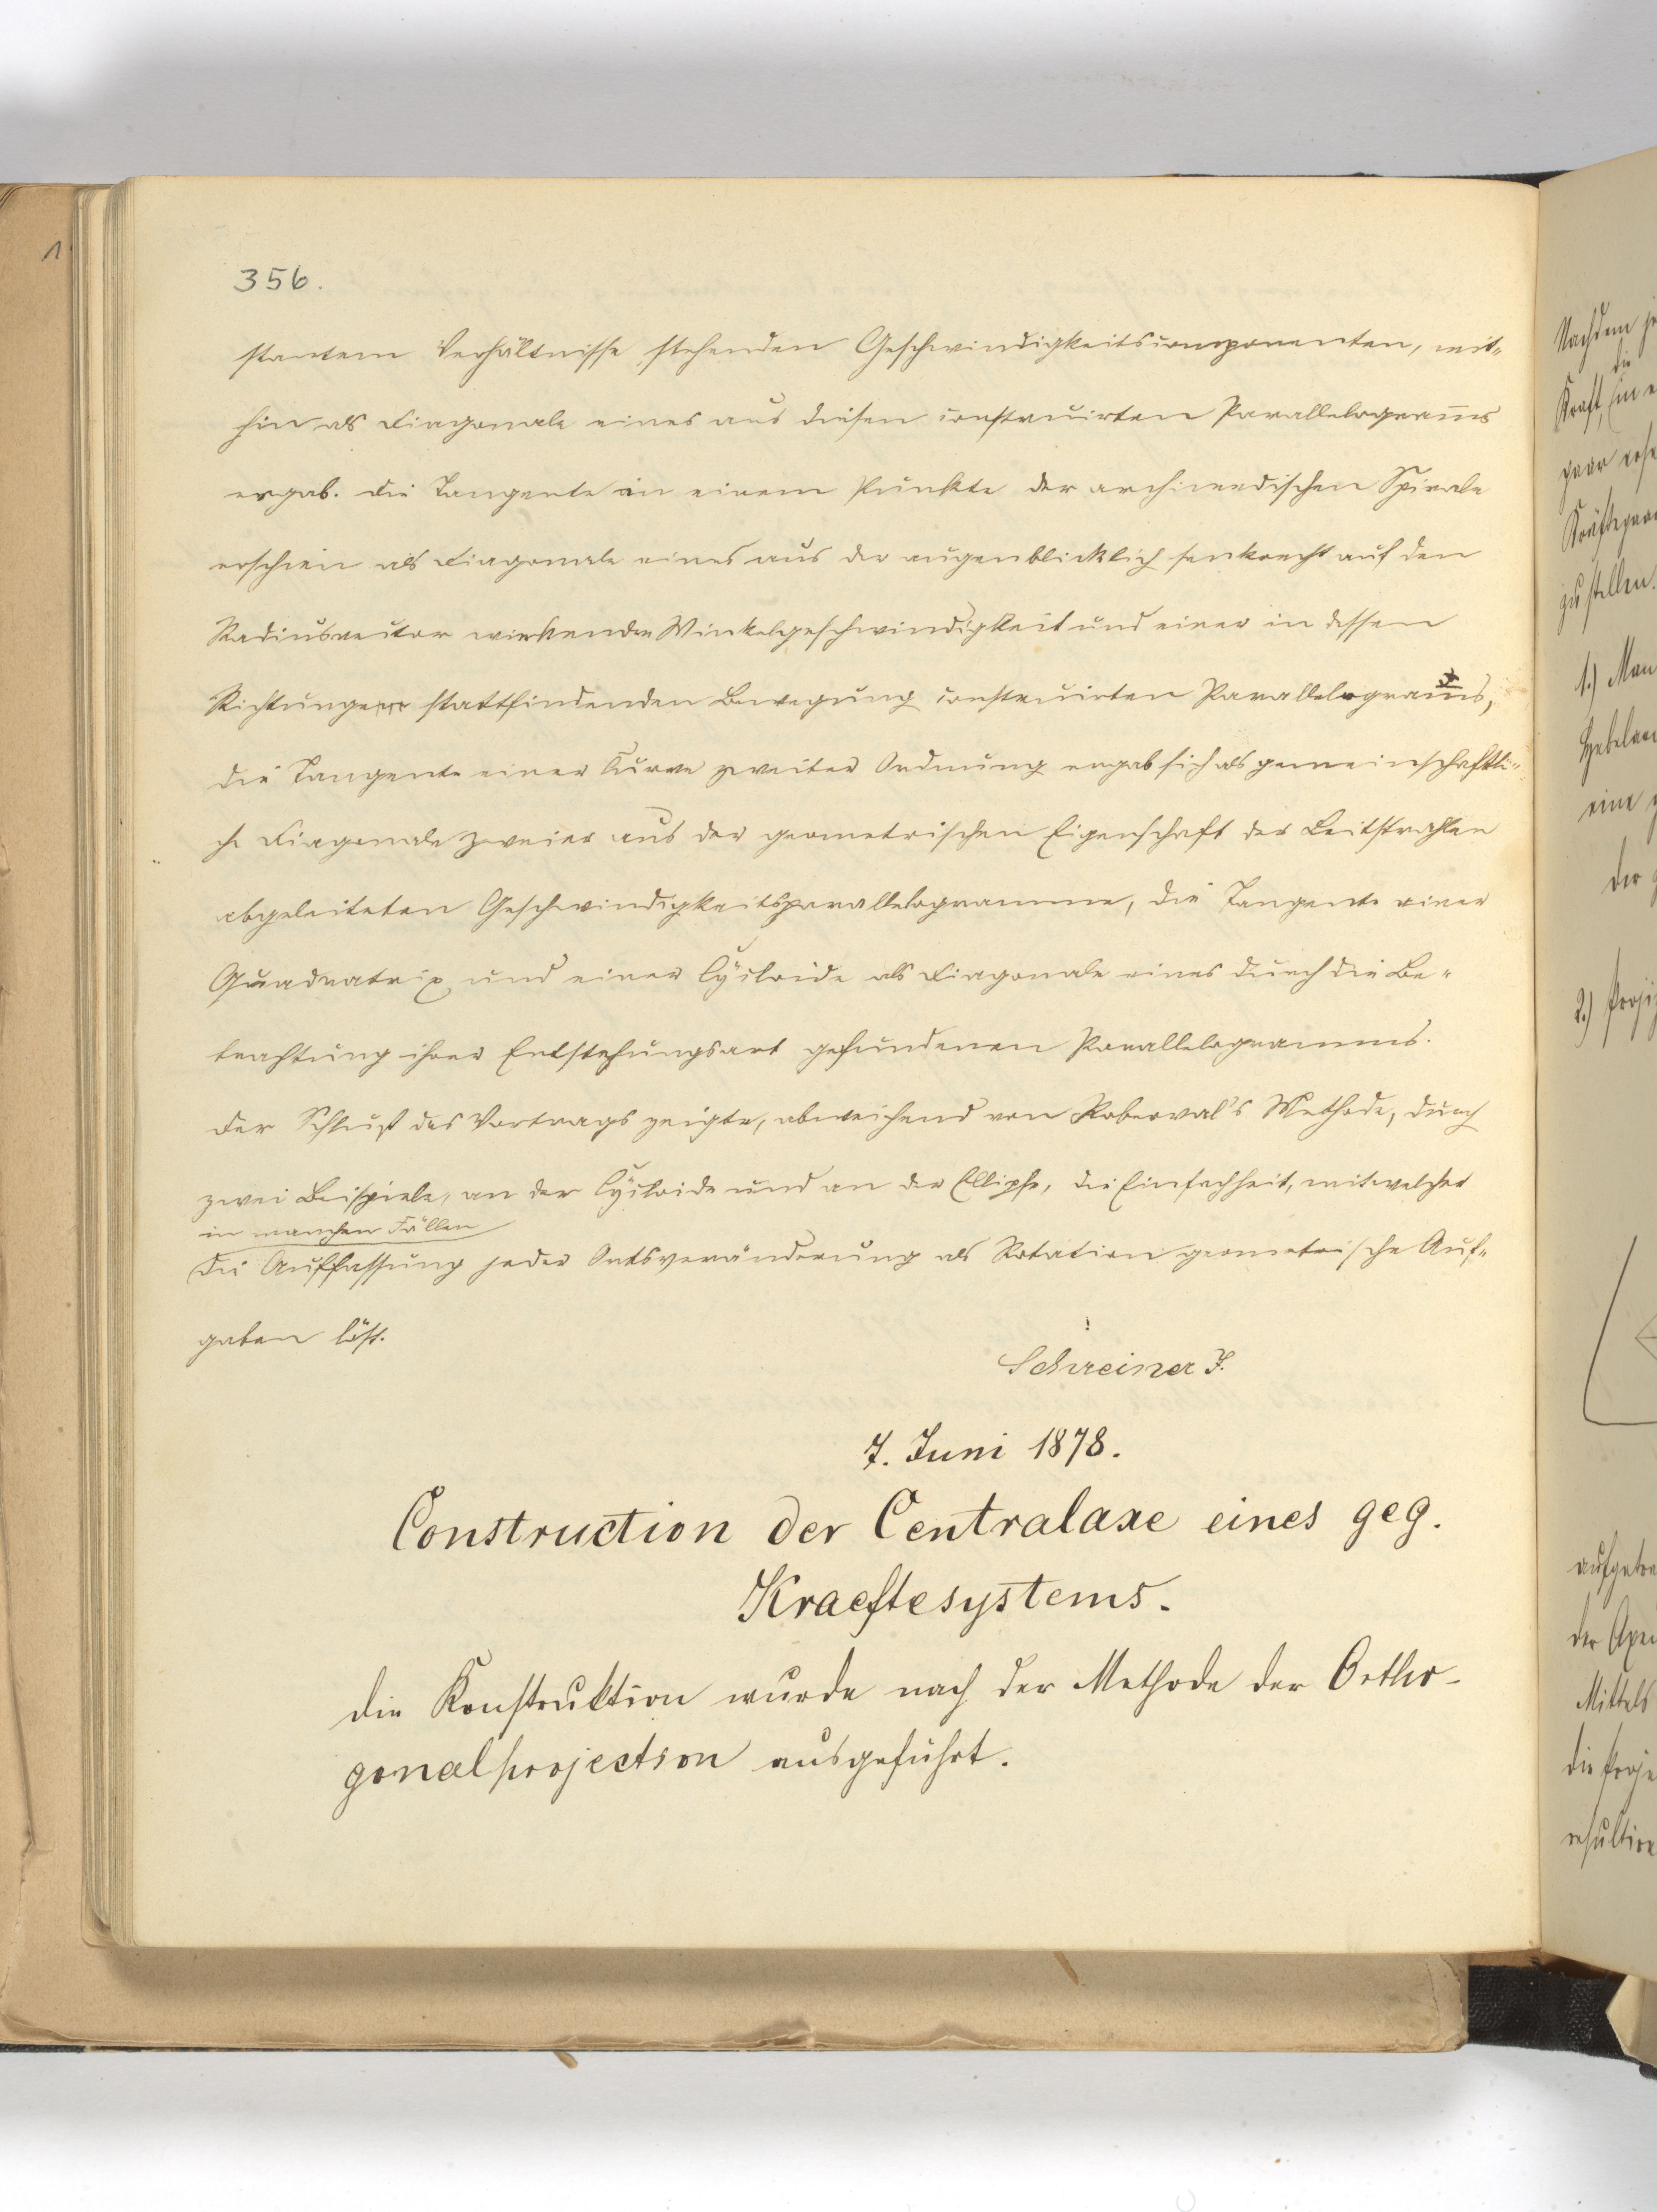 356.
stantem Verhältnisse stehenden Geschwindigkeitscomponenten, mit-
hin als Diagonale eines aus diesen construirten Parallelogram̅s
ergab. Die Tangente in einem Punkte der archimedischen Spirale
erschien als Diagonale eines aus der augenblicklich senkrecht auf den
Radiusvector wirkenden Winkelgeschwindigkeit und einer in dessen
Richtung stattfindenden Bewegung construirten Parallelogram̅s,
die Tangente einer Curve zweiter Ordnung ergab sich als gemeinschaftli-
che Diagonale zweier aus der geometrischen Eigenschaft der Leitstrahlen
abgeleiteten Geschwindigkeitsparallelogramme, die Tangente einer
Quadratrix und einer Cycloide als Diagonale eines durch die Be-
trachtung ihrer Entstehungsart gefundenen Parallelogramms.
Der Schluß des Vortrags zeigte, abweichend von Roberval's Methode, durch
zwei Beispiele, an der Cycloide und an der Ellipse, die Einfachheit, mit welcher
in manchen Fällen
die Auffassung jeder Ortsveränderung als Rotation geometrische Auf-
gaben löst.
Schreiner J.
7. Juni 1878.
Construction der Centralaxe eines geg.
Kraeftesystems.
Die Konstruktion wurde nach der Methode der Ortho-
gonalprojection ausgeführt.
Nachdem
die
Kraft,
zu stellen.
1.) Man
eine
der
2.)
der Axen
Mittels